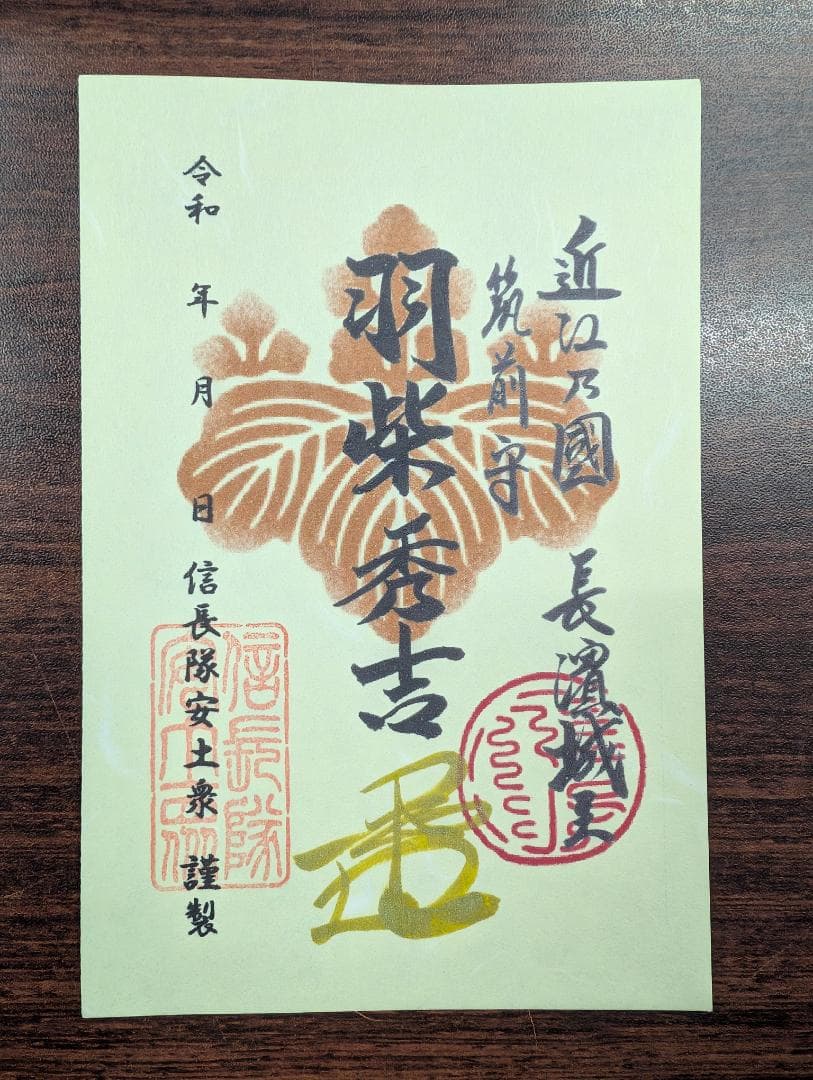 近江乃國 長濵城主
筑前守
羽柴秀吉
令和 年 月 日 信長隊安土衆 謹製
信長隊
安土衆